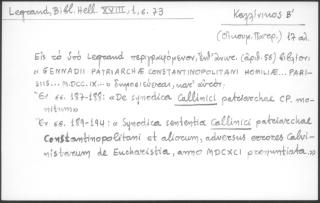 Legrand, Bibl. Hell. XVIII, 1, σ. 73
Καλλίνικος Β'
(Οἰκουμ. Πατρ.) 17 αἰ.
Εἰς τὸ ὑπὸ Legrand περιγραφόμενον, (ἀριθ. 56) βιβλίον:
« GENNADII PATRIARCHÆ CONSTANTINOPOLITANI HOMILIÆ... PARI-
SIIS... MDCC.IX.. » δημοσιεύεται, κατ' αὐτόν.
Ἐν σσ. 187-188: « De synodica Callinici patriarchae CP. mo-
nitum»
Ἐν σσ. 189-194: « Synodica sententia Callinici patriarchae
Constantinopolitani et aliorum, adversus errores Calvi-
nistarum de Eucharistia, anno MDCXCI pronuntiata.»